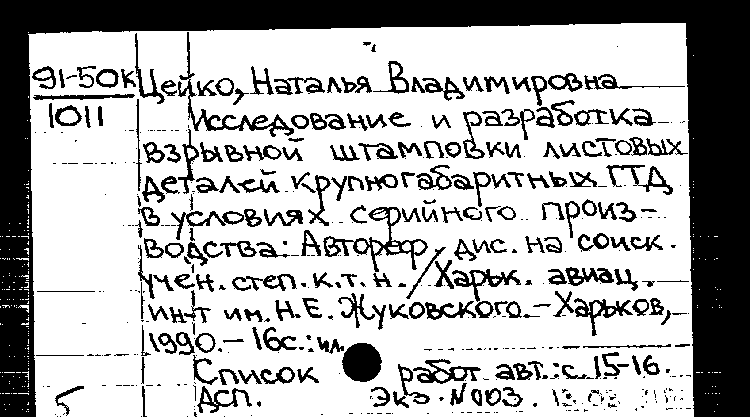 91-50к Цейко, Наталья Владимировна
1011 Исследование и разработка
взрывной штамповки листовых
деталей крупногабаритных ГТД
в условиях серийного произ-
водства: Автореф. дис. на соиск.
учен. степ. к.т.н. / Харьк. авиац.
ин-т им. Н.Е. Жуковского. – Харьков,
1990. – 16с.: ил.
Список работ авт.: с. 15-16.
5 ДСП. Экз. N003.